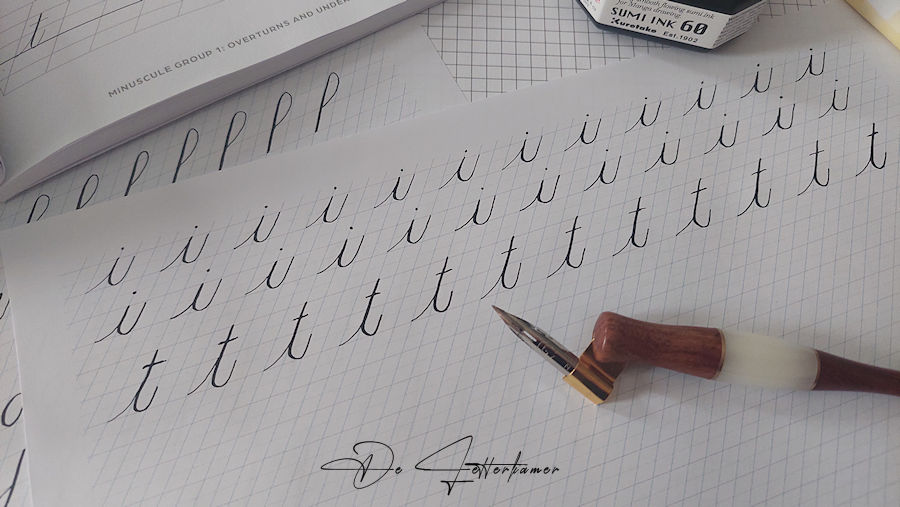 t
MINUSCULE GROUP 1: OVERTURNS AND UNDER
flowing sumi ink
for Manga drawing.
SUMI INK 60
Kuretake Est.1902
p p p p p p p
i i i i i i i i i i i i
i i i i i i i i i i i i
t t t t t t t t t t t t
De Letterkamer